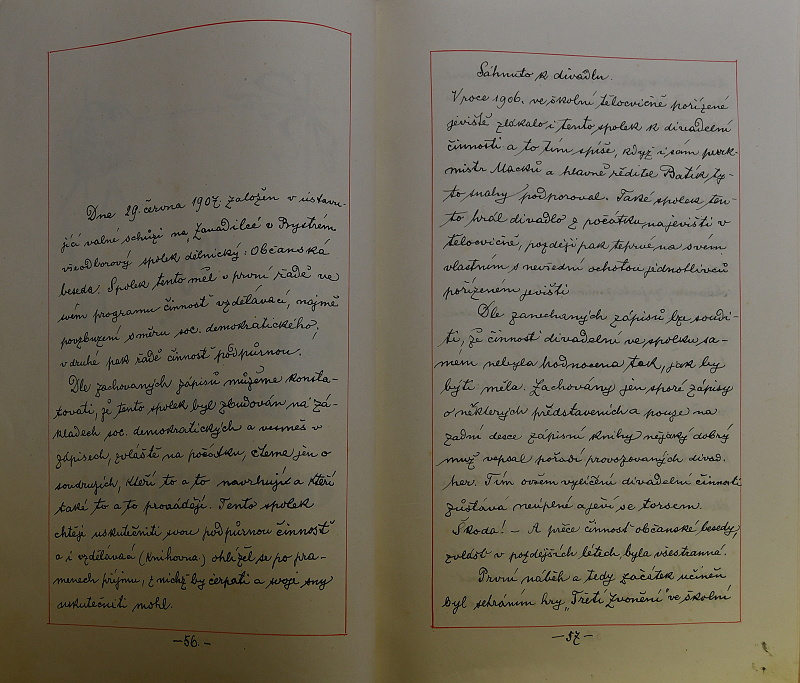 Dne 29. června 1907. založen v ustavu-
jící valné schůzi na „Zavadilce“ v Bystrém
všeodborový spolek dělnický: Občanská
beseda. Spolek tento měl v první řadě ve
svém programu činnost vzdělávací, najmě
povzbuzení směru soc. demokratického,
v druhé pak řadě činnost podpůrnou.
Dle zachovaných zápisů můžeme konsta-
tovati, že tento spolek byl zbudován na zá-
kladech soc. demokratických a vesměs v
zápisech, zvláště na počátku, čteme jen o
soudruzích, kteří to a to navrhují a kteří
také to a to provádějí. Tento spolek
chtěje uskutečniti svou podpůrnou činnost
a i vzdělávací (knihovna) ohlížel se po pra-
menech příjmu, z nichž by čerpati a svoje sny
uskutečniti mohl.
—56.—
Sáhnuto k divadlu.
V roce 1906. ve školní tělocvičně pořízené
jeviště zlákalo i tento spolek k divadelní
činnosti a to tím spíše, když i sám
mistr Macků a hlavně ředitel Batík ty-
to snahy podporoval. Také spolek ten-
to hrál divadlo z počátku na jevišti v
tělocvičně, později pak teprve na svém
vlastním s nevšední ochotou jednotlivců
pořízeném jevišti
Dle zanechaných zápisů lze soudi-
ti, že činnost divadelní ve spolku sa-
mém nebyla hodnosena tak, jak by
býti měla. Zachovány jen sporé zápisy
o některých představeních a pouze na
zadní desce zápisní knihy nějaký dobrý
muž vepsal pořadí provozovaných divad.
her. Tím ovšem vylíčení divadelní činnosti
zůstává neúplné a jeví se torsem.
Škoda! — A přece činnost občanské besedy,
zvlášť v pozdějších létech byla všestranná.
První náběh a tedy začátek učiněn
byl sehráním hry „Třetí zvonění“ ve školní
—57—